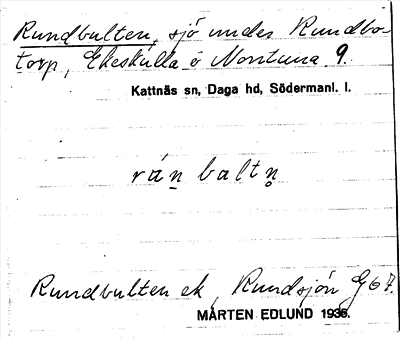 Rundbulten, sjö under Rundbo-
torp, Ekeskulla o Norrtuna 9.
Kattnäs sn, Daga hd, Södermanl. l.
rán baltn̥
Rundbulten ek, Rundsjön G 67.
MÅRTEN EDLUND 1936.